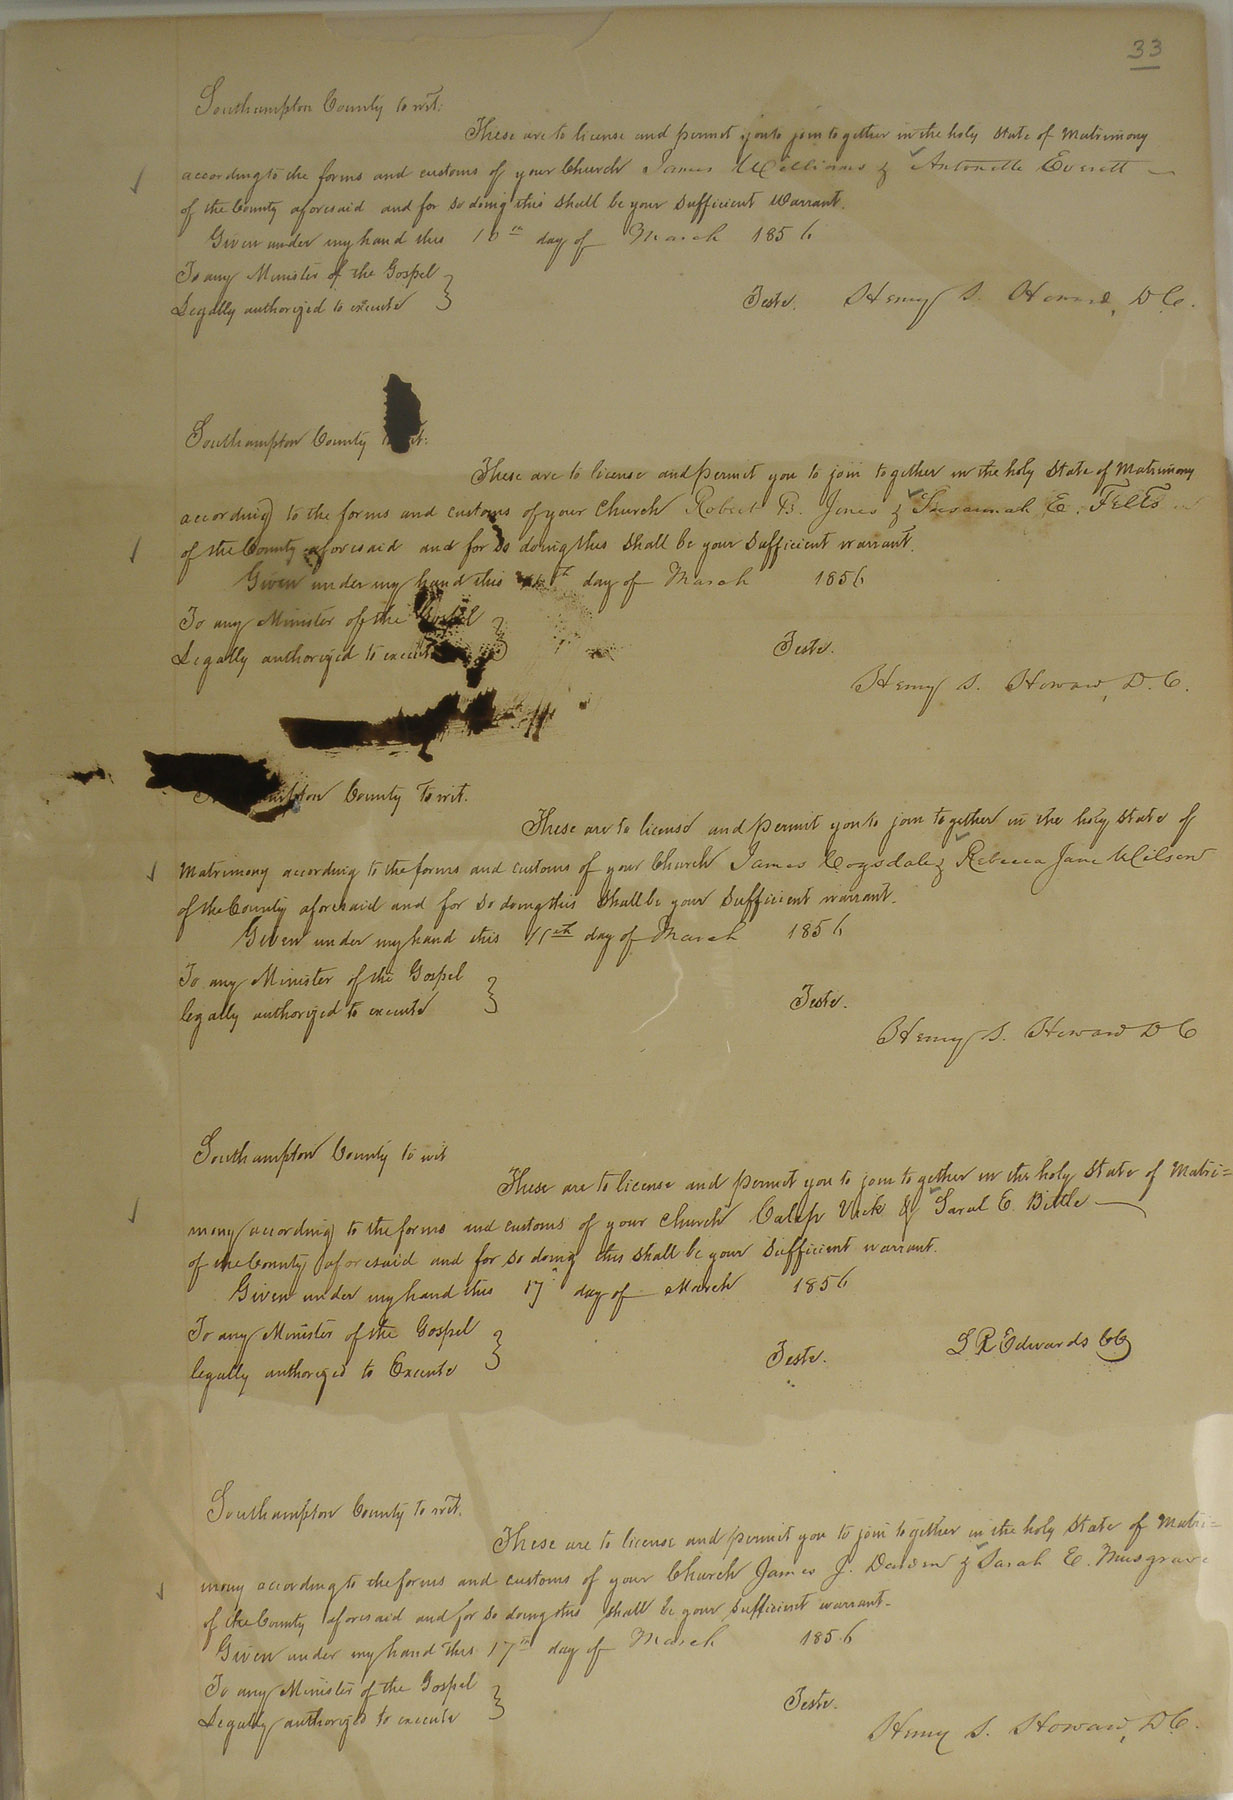 33
Southampton County to wit:
These are to license and permit you to join together in the holy state of Matrimony
according to the forms and customs of your Church James Williams & Antonette Everett
of the County aforesaid and for so doing this shall be your sufficient warrant.
Given under my hand this 10th day of March 1856
To any Minister of the Gospel
Legally authorized to execute
Teste. Henry S. Howard, D C.
Southampton County
These are to license and permit you to join together in the holy State of Matrimony
according to the forms and customs of your Church Robert B. Jones & Susannah E. Felts
of the County aforesaid and for so doing this shall be your sufficient warrant.
Given under my hand this day of March 1856
To any Minister of the Gospel
Legally authorized to execute
Teste.
Henry S. Howard, D. C.
County to wit.
These are to license and permit you to join together in the holy state of
Matrimony according to the forms and customs of your Church James Cogsdale & Rebecca Jane Wilson
of the County aforesaid and for so doing this shall be your sufficient warrant.
Given under my hand this day of March 1856
To any Minister of the Gospel
legally authorized to execute
Teste.
Henry S. Howard D C
Southampton County to wit
These are to license and permit you to join together in the holy State of Matri=
mony according to the forms and customs of your Church Calep Vick & Sarah E. Bittle
of the County aforesaid and for so doing this shall be your sufficient warrant.
Given under my hand this 17 day of March 1856
To any Minister of the Gospel
legally authorized to Execute
Teste. L R Edwards CC
Southampton County to wit.
These are to license and permit you to join together in the holy State of Matri=
mony according to the forms and customs of your Church James J. Darden & Sarah E. Musgrave
of the County aforesaid and for so doing this shall be your sufficient warrant.
Given under my hand this 17th day of March 1856
To any Minister of the Gospel
Legally authorized to execute
Teste.
Henry S. Howard, D.C.